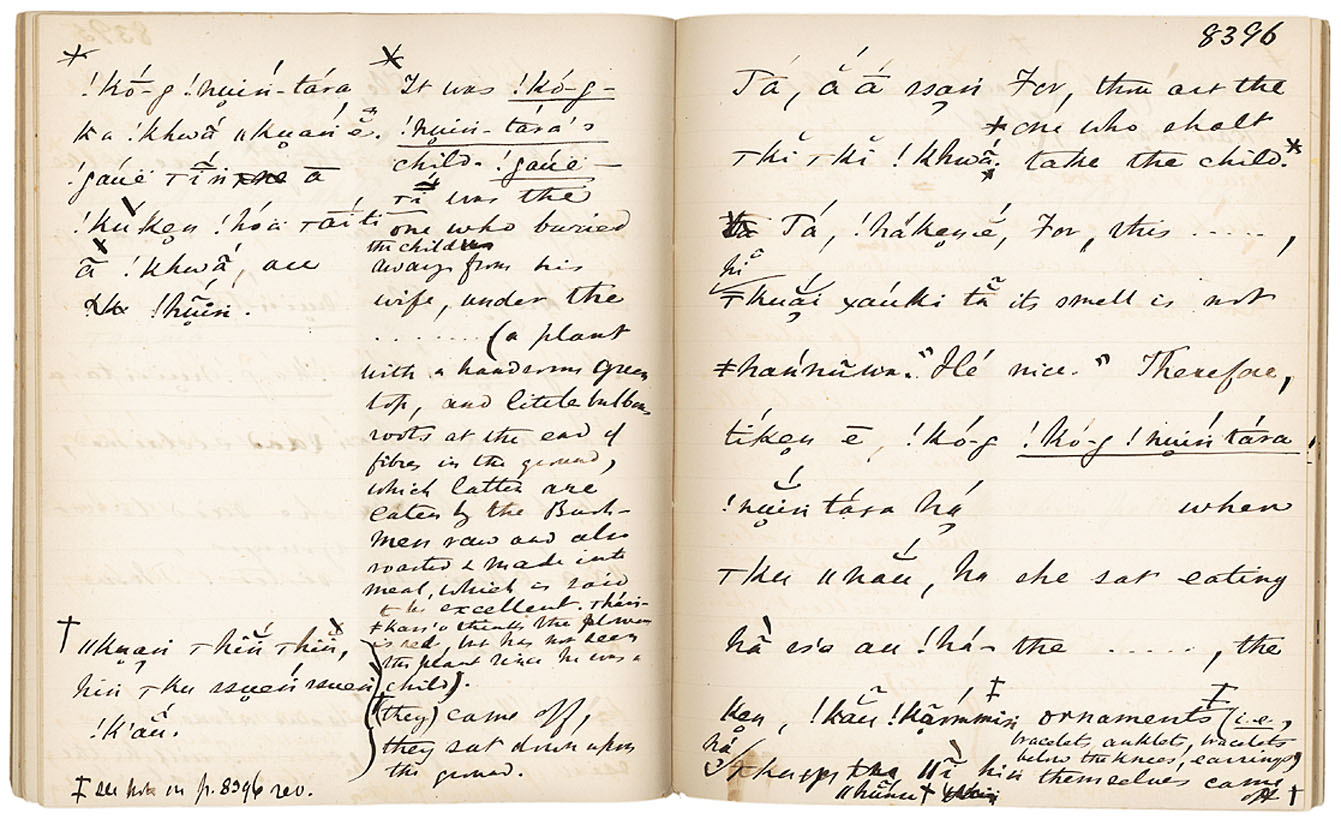 !kó-g !nu̥in-tára
ka !khwā́ ǁku̥an ē̆.
!gáuë ꞇĭ́n ā
!kúken̥ !hóä ꞇaiti
ā !khwā́, au
!hū̥ĭn.
It was !kó-g-
!nu̥in-tára's
child. !gáuë-
ꞇĭ́ was the
one who buried
the child
away from his
wife, under the
........ (a plant
with a handsome green
top, and little bulbous
roots at the end of
fibres in the ground,
which latter are
eaten by the Bush-
men raw and also
roasted & made into
meal, which is said
to be excellent. ꞇhán-
ǂkass'o thinks the flower
is red, but has not seen
the plant since he was a
child).
† ǁku̥an ꞇhĭń ꞇhĭń,
hin ꞇku ssu̥eń ssu̥eń
!k'aŭ́.
(they) came off,
they sat down upon
the ground.
‡ see note in p. 8396 rev.
8396
Tá, ă ā́ ssa̤n For, thou art the
* one who shalt
ꞇkĭ ꞇkĭ !khwā́. take the child.*
Tá, !hăken̥é, For, this ....., 
hĭ
ꞇkuḁ̆i xáuki tā̆ its smell is not
ǂhań nŭwa." Hé nice." Therefore,
tíken̥ ē, !kó-g !kó-g !nu̥iń tára
!nŭ̥in tára há̤ when
ꞇku ǁnăŭ, ha she sat eating
hằ ss'o au !há- the ....., the
ken̥, !kău !kā́rmmin ‡ ornaments ‡ (i.e.,
bracelets, anklets, bracelets
below the knees, earrings)
há ǁĭ̀ hin themselves came
ǁkŭ́nu † off †